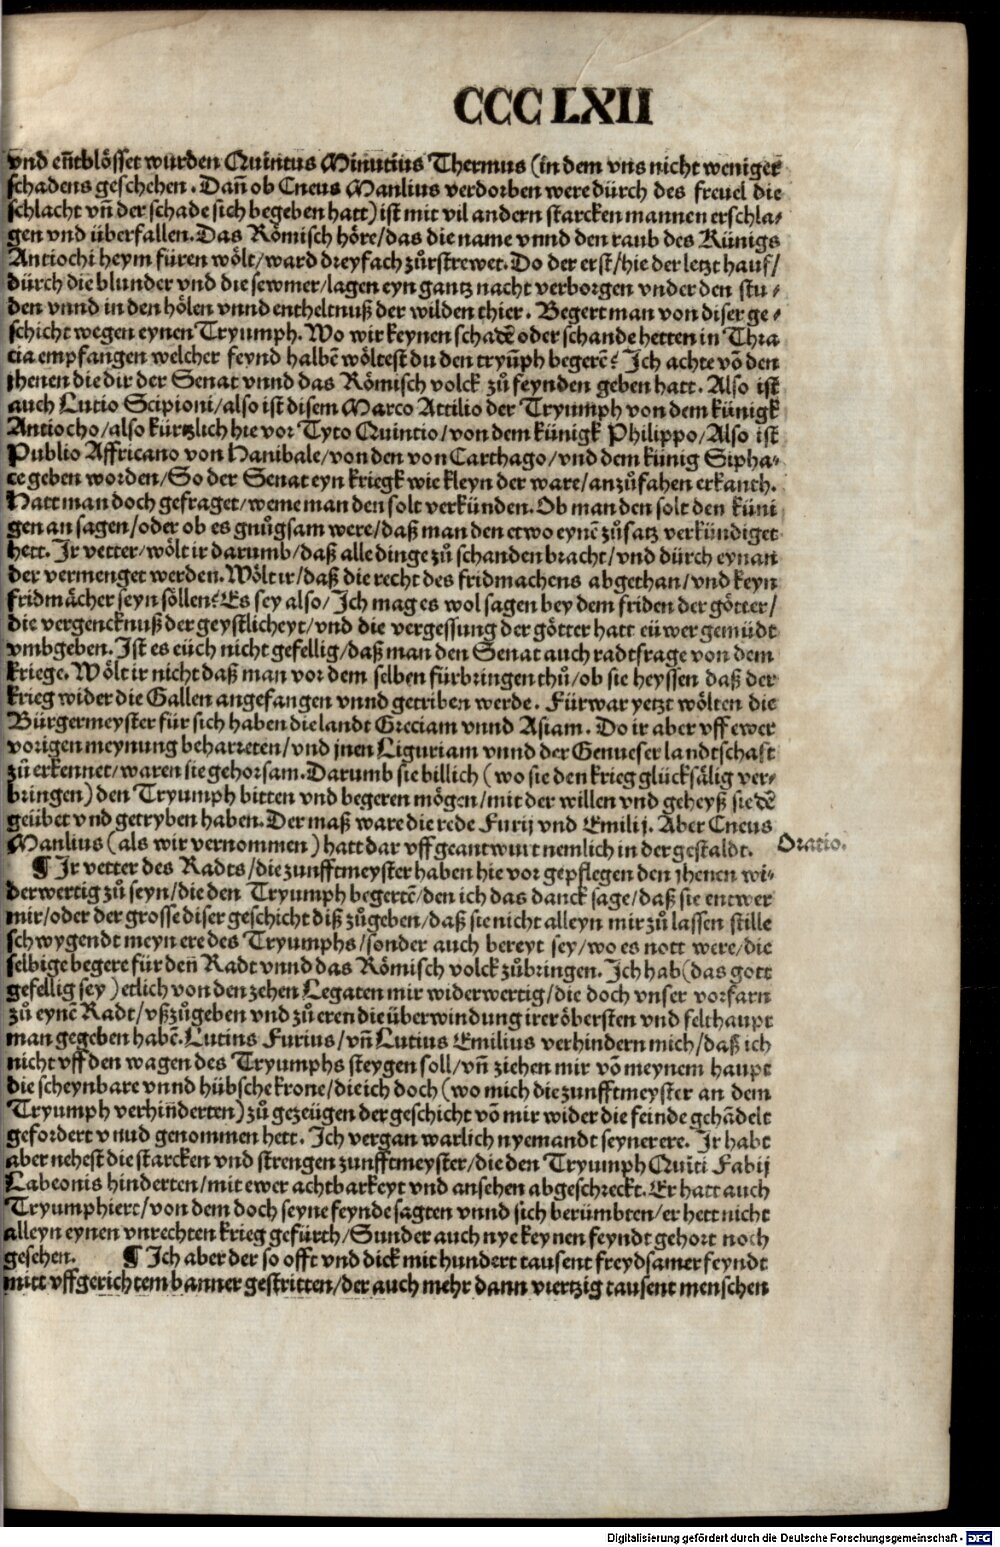 CCC LXII
vnd eñtblösset wurden Quintus Minutius Thermus (in dem vns nicht weniger
schadens geschehen. Dañ ob Cneus Manlius verdorben were dürch des freuel die
schlacht vñ der schade sich begeben hatt) ist mit vil andern starcken mannen erschla⸗
gen vnd überfallen. Das Römisch höre/das die name vnnd den raub des Künigs
Antiochi heym füren wölt/ward dreyfach zůrstrewet. Do der erst/hie der letzt hauf/
dürch die blunder vnd die sewmer/lagen eyn gantz nacht verborgen vnder den stu⸗
den vnnd in den hölen vnnd entheltnuß der wilden thier. Begert man von diser ge⸗
schicht wegen eynen Tryumph. Wo wir keynen schadē oder schande hetten in Thra
cia empfangen welcher feynd halbē wöltest du den tryūph begerē? Ich achte vō den
jhenen die dir der Senat vnnd das Römisch volck zů feynden geben hatt. Also ist
auch Lutio Scipioni/also ist disem Marco Attilio der Tryumph von dem künigk
Antiocho/also kürtzlich hie vor Tyto Quintio/von dem künigk Philippo/Also ist
Publio Affricano von Hanibale/von den von Carthago/vnd dem künig Sipha⸗
ce geben worden/So der Senat eyn kriegk wie kleyn der ware/anzůfahen erkanth.
Hatt man doch gefraget/weme man den solt verkünden. Ob man den solt den küni
gen an sagen/oder ob es gnůgsam were/daß man den etwo eynē zůsatz verkündiget
hett. Ir vetter/wölt ir darumb/daß alle dinge zů schanden bracht/vnd dürch eynan
der vermenget werden. Wölt ir/daß die recht des fridmachens abgethan/vnd keyn
fridmächer seyn söllen? Es sey also/Ich mag es wol sagen bey dem friden der götter/
die vergencknuß der geystlicheyt/vnd die vergessung der götter hatt eüwer gemüdt
vmbgeben. Ist es eüch nicht gefellig/daß man den Senat auch radtfrage von dem
kriege. Wölt ir nicht daß man vor dem selben fürbringen thů/ob sie heyssen daß der
krieg wider die Gallen angefangen vnnd getriben werde. Fürwar yetzt wölten die
Bürgermeyster für sich haben die landt Greciam vnnd Asiam. Do ir aber vff ewer
vorigen meynung beharreten/vnd jnen Liguriam vnnd der Genueser landtschafft
zů erkennet/waren sie gehorsam. Darumb sie billich (wo sie den krieg glücksälig ver⸗
bringen) den Tryumph bitten vnd begeren mögen/mit der willen vnd geheyß sie dē
geübet vnd getryben haben. Der maß ware die rede Furij vnd Emilij. Aber Cneus
Manlius (als wir vernommen) hatt dar vff geantwurt nemlich in der gestaldt.
Oratio.
¶ Ir vetter des Radts/die zunfftmeyster haben hie vor gepflegen den jhenen wi⸗
derwertig zů seyn/die den Tryumph begertē/den ich das danck sage/daß sie entwer
mir/oder der grosse diser geschicht diß zůgeben/daß sie nicht alleyn mir zů lassen stille
schwygendt meyn ere des Tryumphs/sonder auch bereyt sey/wo es nott were/die
selbige begere für deñ Radt vnnd das Römisch volck zůbringen. Ich hab (das gott
gefellig sey) etlich von den zehen Legaten mir widerwertig/die doch vnser vorfarn
zů eynē Radt/vßzůgeben vnd zů eren die überwindung irer öbersten vnd felthaupt
man gegeben habē. Lutins Furius/vñ Lutius Emilius verhindern mich/daß ich
nicht vff den wagen des Tryumphs steygen soll/vñ ziehen mir vō meynem haupt
die scheynbare vnnd hübsche krone/die ich doch (wo mich die zunfftmeyster an dem
Tryumph verhiñderten) zů gezeügen der geschicht vō mir wider die feinde gehādelt
gefordert vnnd genommen hett. Ich vergan warlich nyemandt seyner ere. Ir habt
aber nehest die starcken vnd strengen zunfftmeyster/die den Tryumph Quīti Fabij
Labeonis hinderten/mit ewer achtbarkeyt vnd ansehen abgeschreckt. Er hatt auch
Tryumphiert/von dem doch seyne feynde sagten vnnd sich berümbten/er hett nicht
alleyn eynen vnrechten krieg gefürth/Sunder auch nye keynen feyndt gehort noch
gesehen. ¶ Ich aber der so offt vnd dick mit hundert tausent freydsamer feyndt
mitt vffgerichtem banner gestritten/der auch mehr dann viertzig tausent menschen
Digitalisierung gefördert durch die Deutsche Forschungsgemeinschaft - DFG